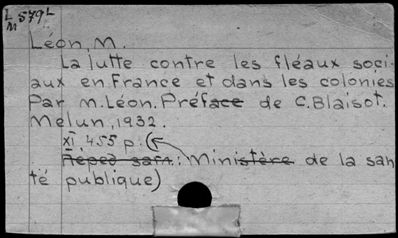 L 579L
M
Léon, M.
La lutte contre les fléaux soci-
aux en France et dans les colonies
Par M. Léon. Préface de C. Blaisot.
Melun, 1932.
XI, 455 p. (
: Ministère de la san
té publique)